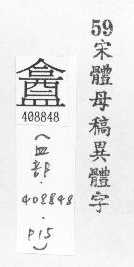 59宋體母稿異體字
408848
(皿部.408848.P15)